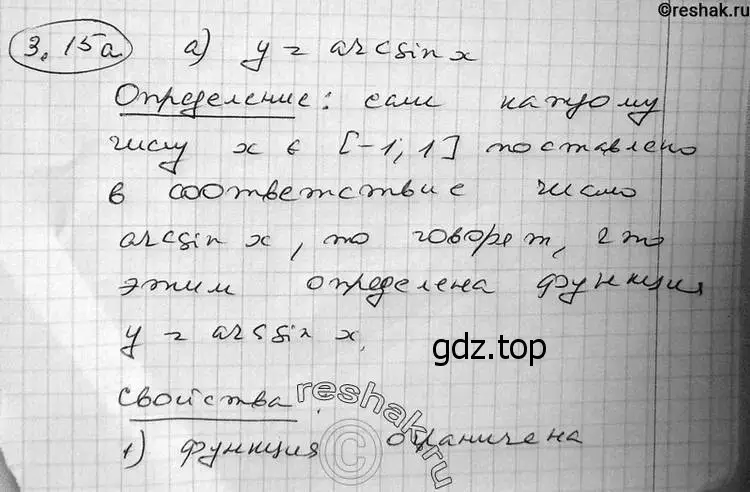 ©reshak.ru
3.15a a) y = arcsin x
Определение: если каждому
числу x ∈ [-1; 1] поставлено
в соответствие число
arcsin x, то говорят, что
этим определена функция
y = arcsin x.
gdz.top
Свойства:
1) функция ограничена
reshak.ru
©